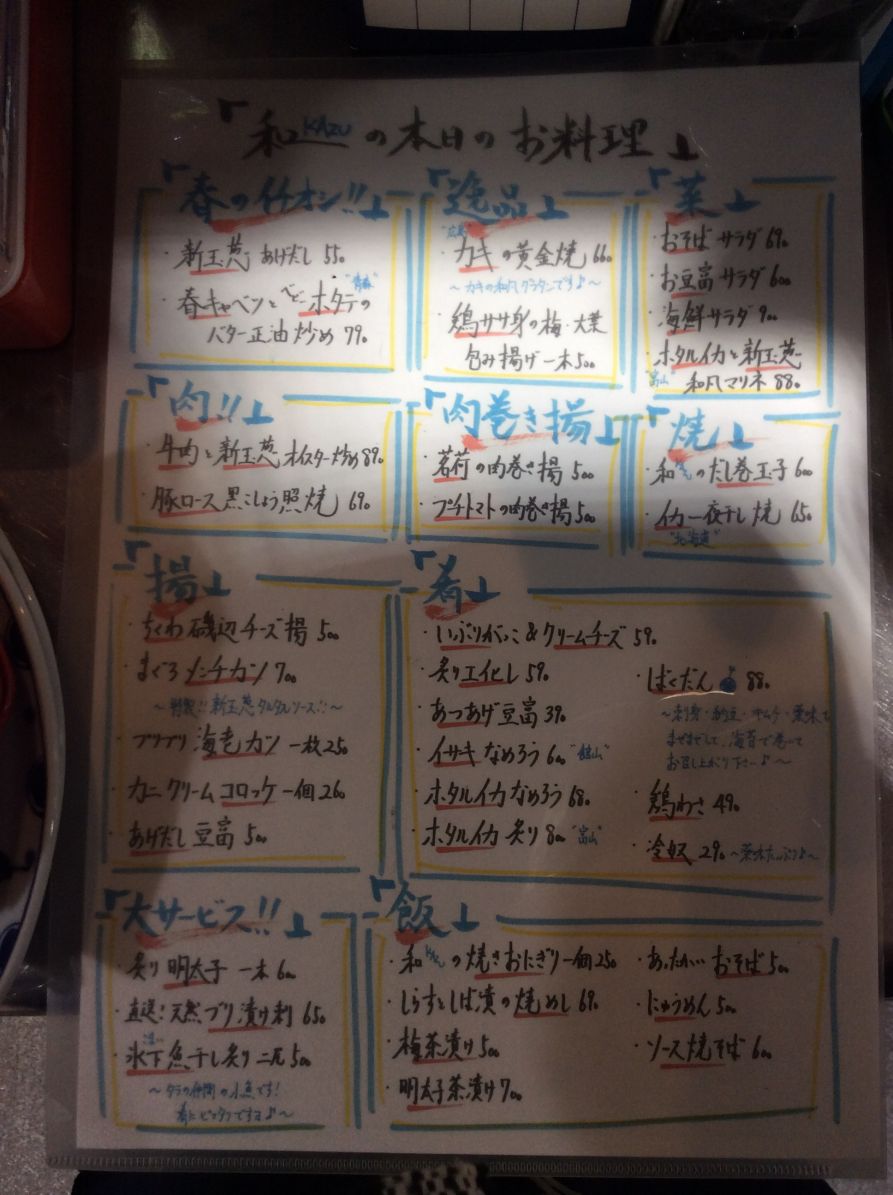 「和KAZUの本日のお料理」
「春のイチオシ!!」
・新玉葱あげだし 550
"青森"
・春キャベツとベビーホタテの
バター正油炒め 790
「逸品」
"広島"
・カキの黄金焼 660
〜カキの和風グラタンです♪〜
・鶏ササ身の梅・大葉
包み揚げ一本 500
「菜」
・おそばサラダ 690
・お豆富サラダ 600
・海鮮サラダ 900
・ホタルイカと新玉葱
"富山" 和風マリネ 880
「肉!!」
・牛肉と新玉葱オイスター炒め 890
・豚ロース黒こしょう照焼 690
「肉巻き揚」
・茗荷の肉巻き揚 500
・プチトマトの肉巻き揚 500
「焼」
・和くんのだし巻玉子 600
・イカ一夜干し焼 650
"北海道"
「揚」
・ちくわ磯辺チーズ揚 500
・まぐろメンチカツ 700
〜特製!!新玉葱タルタルソース!!〜
・プリプリ海老カツ 一枚 250
・カニクリームコロッケ一個 260
・あげだし豆富 500
「肴」
・いぶりがっこ&クリームチーズ 590
・炙りエイヒレ 590
・あつあげ豆富 390
・イサキなめろう 600 "館山"
・ホタルイカなめろう 680
・ホタルイカ炙り 800 "富山"
・ばくだん 880
〜刺身・納豆・キムチ・薬味を
まぜまぜして、海苔で巻いて
お召し上がり下さい♪〜
・鶏わさ 490
・冷奴 290 〜薬味たっぷり♪〜
「大サービス!!」
・炙り明太子 一本 600
・直送!天然ブリ漬け刺 650
・氷下魚干し炙り二尾 500
〜タラの仲間の小魚です!
肴にピッタリですよ♪〜
「飯」
・和くんの焼きおにぎり一個 250
・しらすとしば漬の焼めし 690
・梅茶漬け 500
・明太子茶漬け 700
・あったか〜いおそば 500
・にゅうめん 500
・ソース焼そば 600